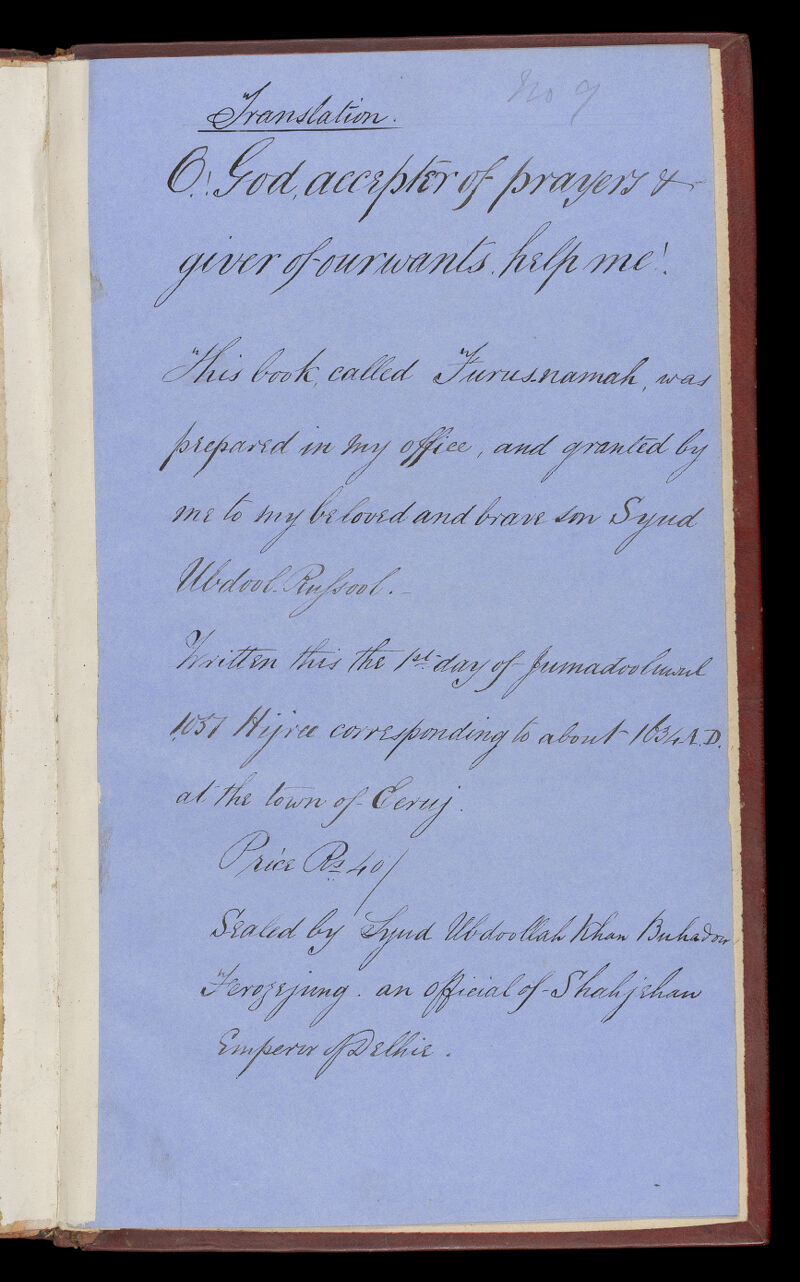 No 9
Translation.
O! God, accepter of prayers &
giver of our wants, help me!
This book, called Furusnamah, was
prepared in my office, and granted by
me to my beloved and brave son Syud
Ubdool Russool.
Written this the 1st day of
1057 Hijree corresponding to about 1634 A.D.
at the town of Eeruj.
Price Rs 40/
Sealed by Syud Ubdoollah Khan Buhadoor
Ferozejung. an official of Shahjehan
Emperor of Delhie.